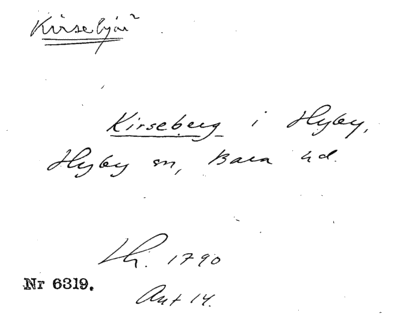 Kirseberg i Hyby,
Hyby sn, Bara hd.
Lh. 1790
Nr 6319.
Ant 14.